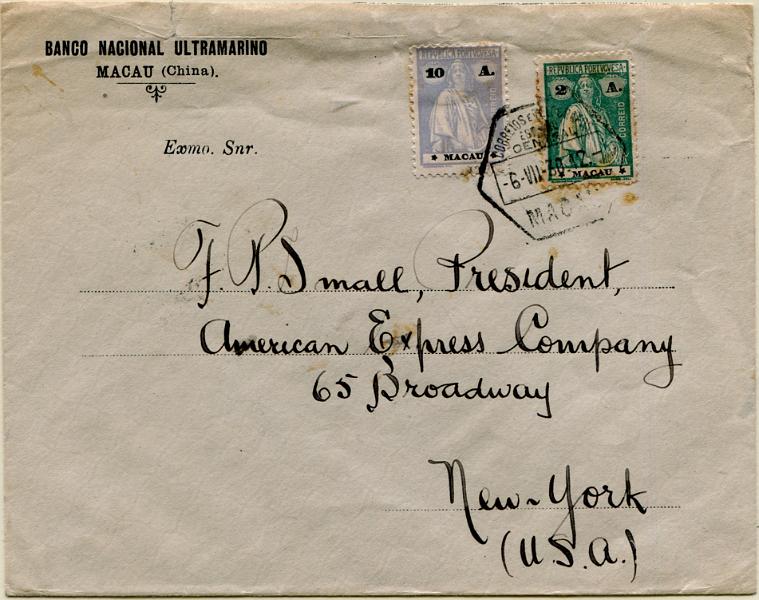 BANCO NACIONAL ULTRAMARINO
MACAU (China).
Exmo. Snr.
REPVBLICA PORTVGVESA
10 A.
CORREIO
MACAU
REPVBLICA PORTVGVESA
2 A.
CORREIO
MACAU
CORREIOS
CENTRAL
-6-VII-30 12-
MACAU
F. P. Small, President,
American Express Company
65 Broadway
New-York
(U.S.A.)